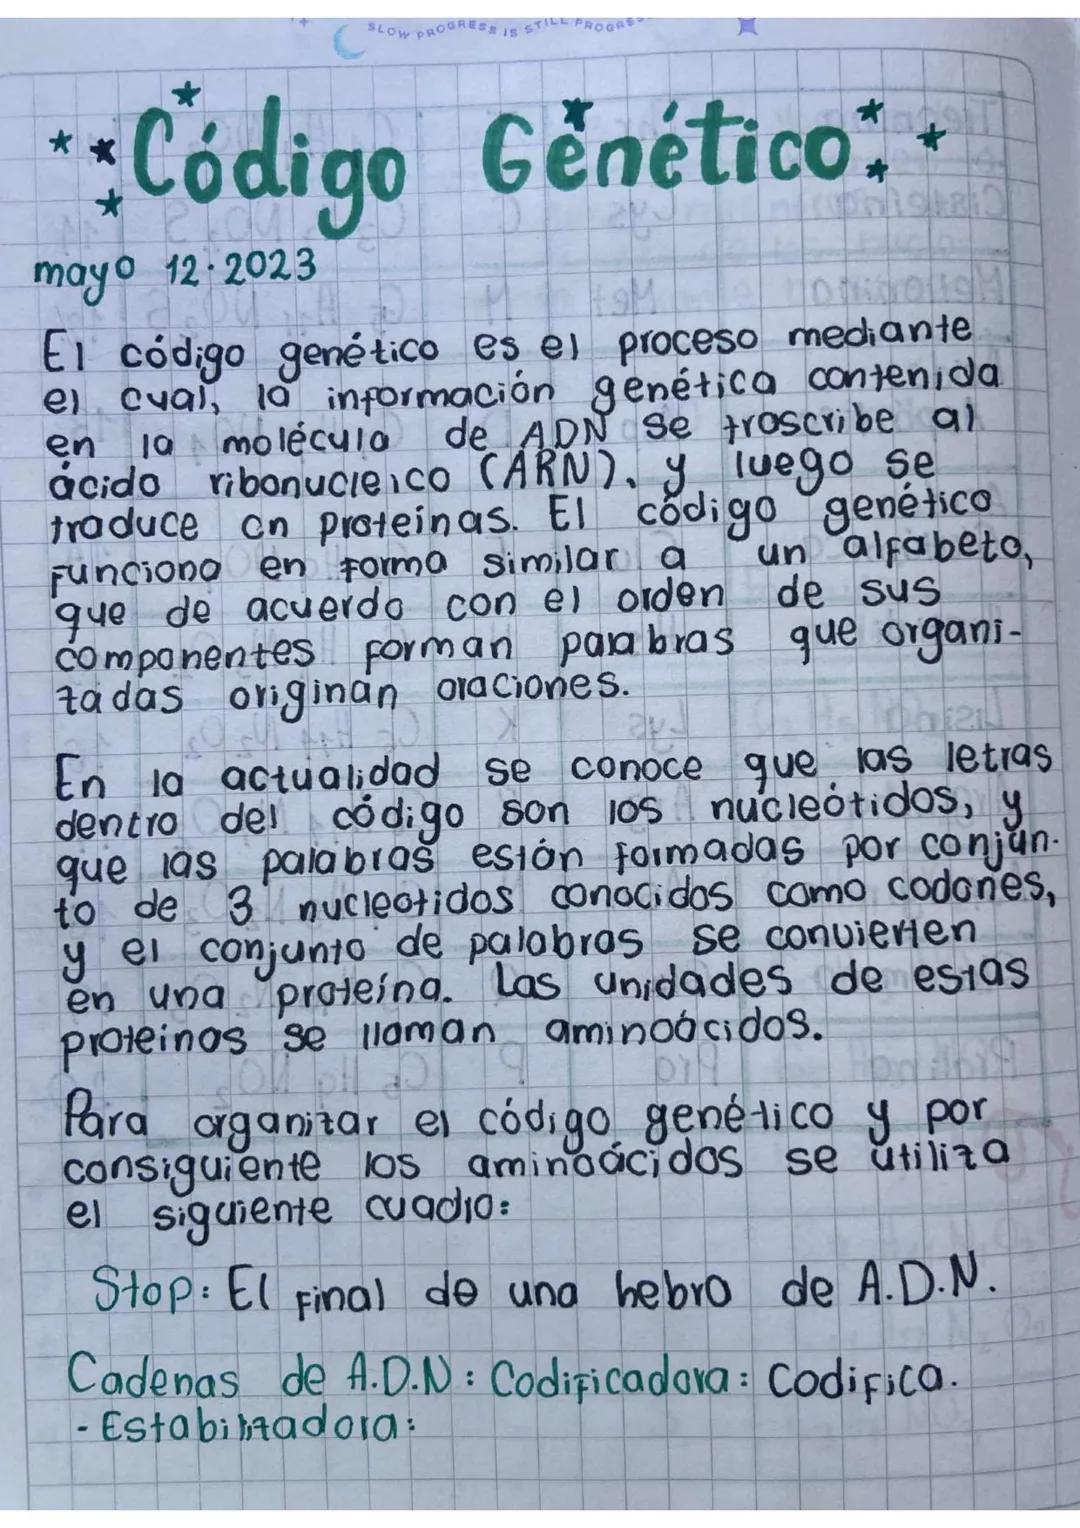 SLOW PROGRESS IS STILL PROGRESS
Código Genético
mayo 12. 2023
El código genético es el proceso mediante
el cual, la información genética contenida
en la molécula de ADN se trascribe al
ácido ribonucleico (ARN), y luego se
traduce en proteínas. El código genético
Funciona en Forma similar a un alfabeto,
que de acuerdo con el orden de sus
componentes forman palabras que organi-
zadas originan oraciones.
En la actualidad se conoce que las letras
dentro del código son los nucleótidos, y
que las palabras están formadas por conjun-
to de 3 nucleotidos conocidos como codones,
y el conjunto de palabras se convierten
en una proteína. Las unidades de estas
proteinas se llaman aminoácidos.
Para organizar el código genético y por
consiguiente los aminoácidos se utiliza
el siguiente cuadro:
Stop: El Final de una hebra de A.D.N.
Cadenas de A.D.N: Codificadora: Codifica.
- Estabilizadora: